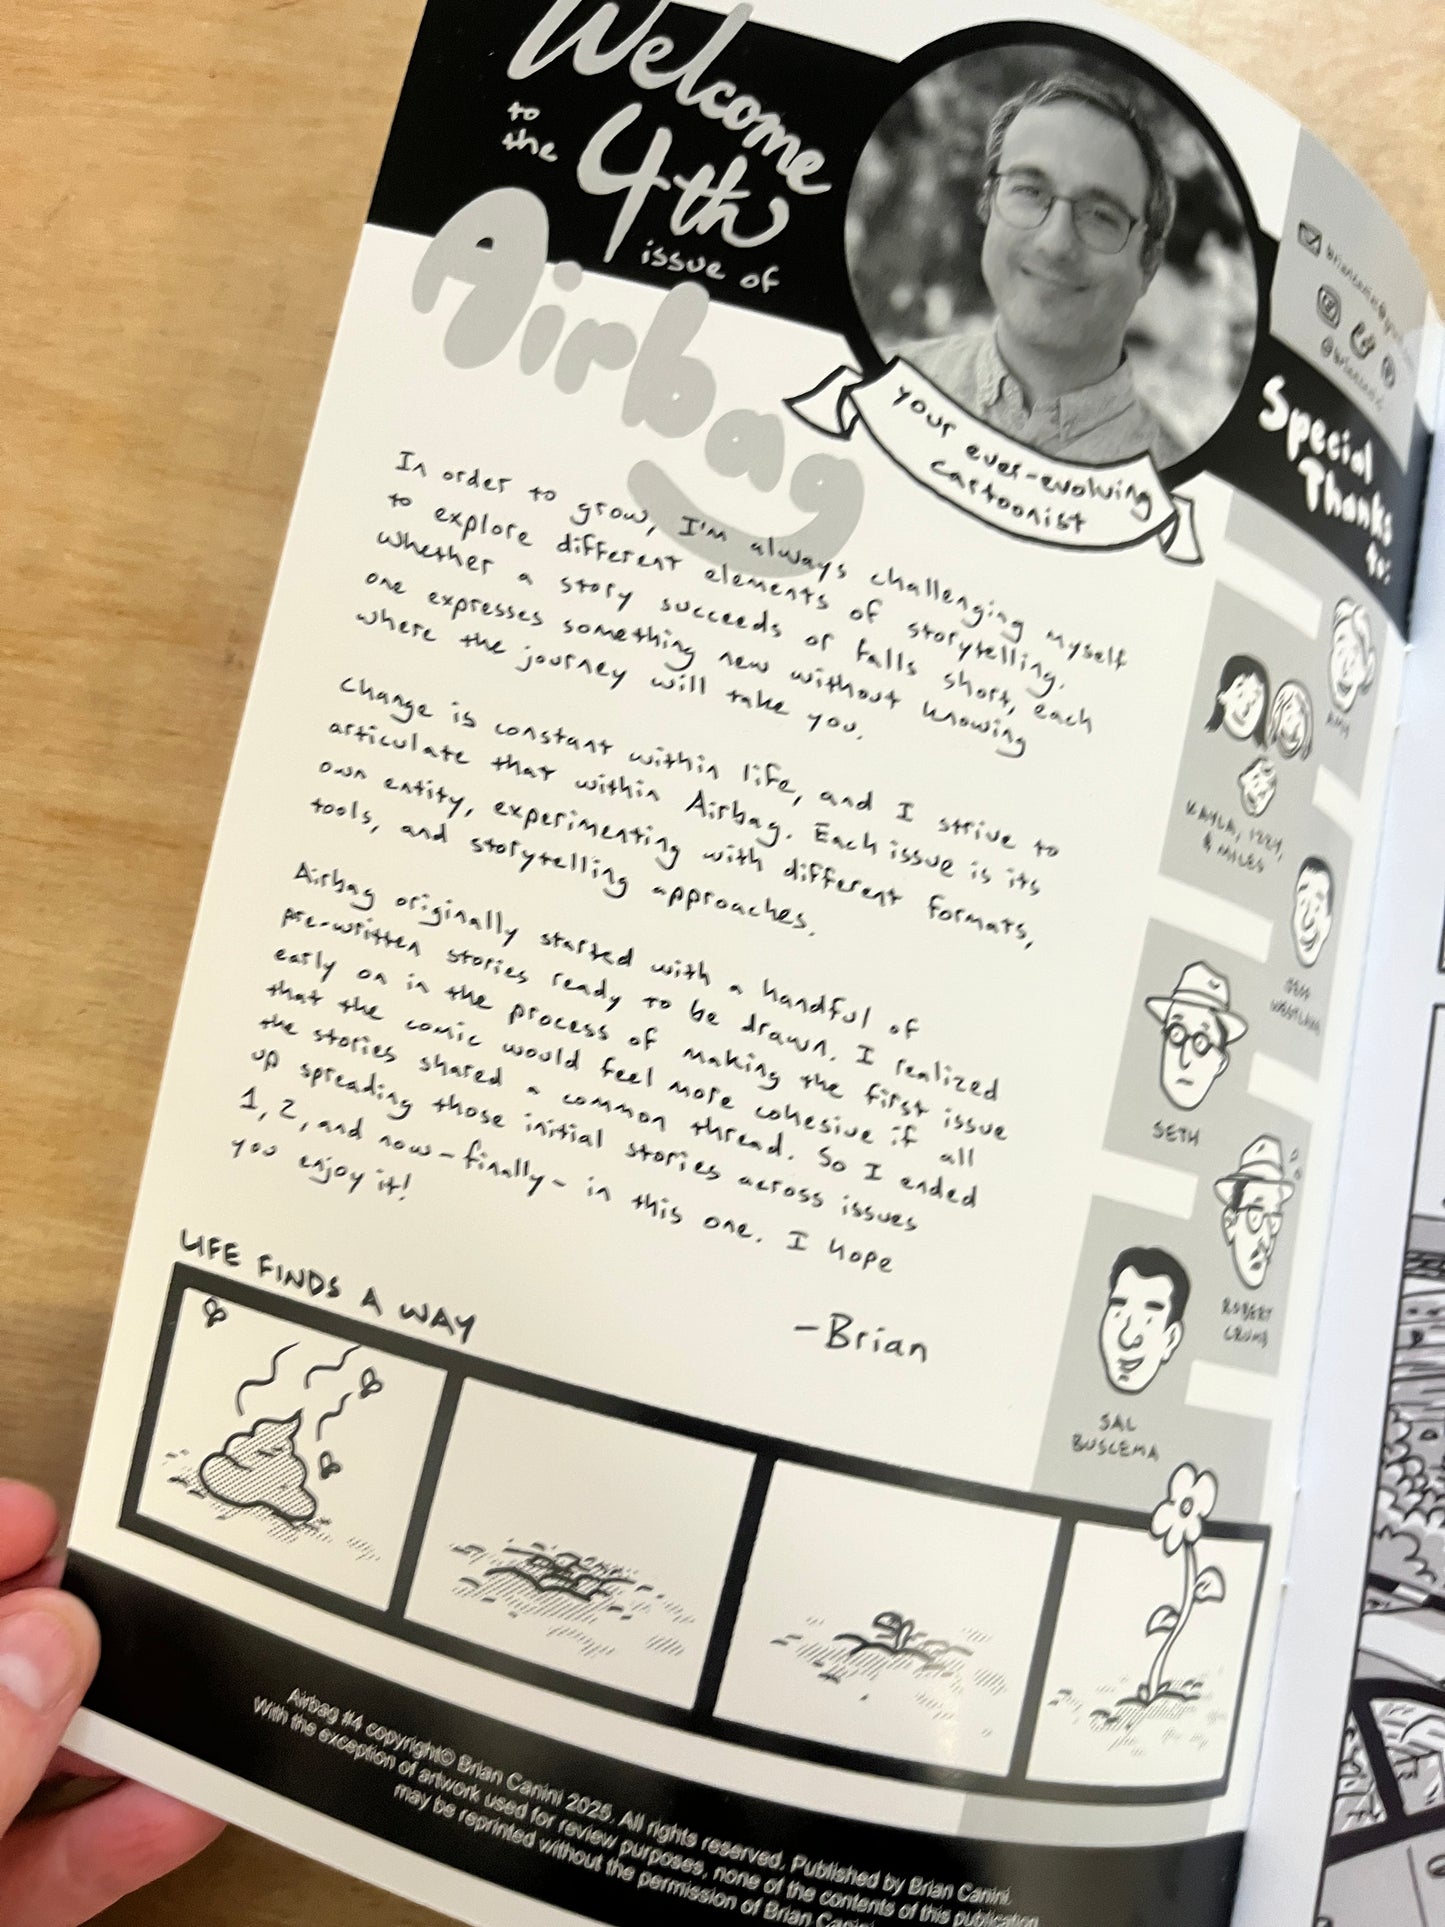 Welcome
to
the 4th
issue of
Airbag
your ever-evolving
cartoonist
In order to grow, I'm always challenging myself
to explore different elements of storytelling.
Whether a story succeeds or falls short, each
one expresses something new without knowing
where the journey will take you.
Change is constant within life, and I strive to
articulate that within Airbag. Each issue is its
own entity, experimenting with different formats,
tools, and storytelling approaches.
Airbag originally started with a handful of
pre-written stories ready to be drawn. I realized
early on in the process of making the first issue
that the comic would feel more cohesive if all
the stories shared a common thread. So I ended
up spreading those initial stories across issues
1, 2, and now-finally- in this one. I hope
you enjoy it!
-Brian
Special
Thanks
to:
AMY
KAYLA, IZZY,
& MILES
SETH
ROBERT
CRUMB
SAL
BUSCEMA
LIFE FINDS A WAY
Airbag #4 copyright© Brian Canini 2025. All rights reserved. Published by Brian Canini.
With the exception of artwork used for review purposes, none of the contents of this publication
may be reprinted without the permission of Brian Canini